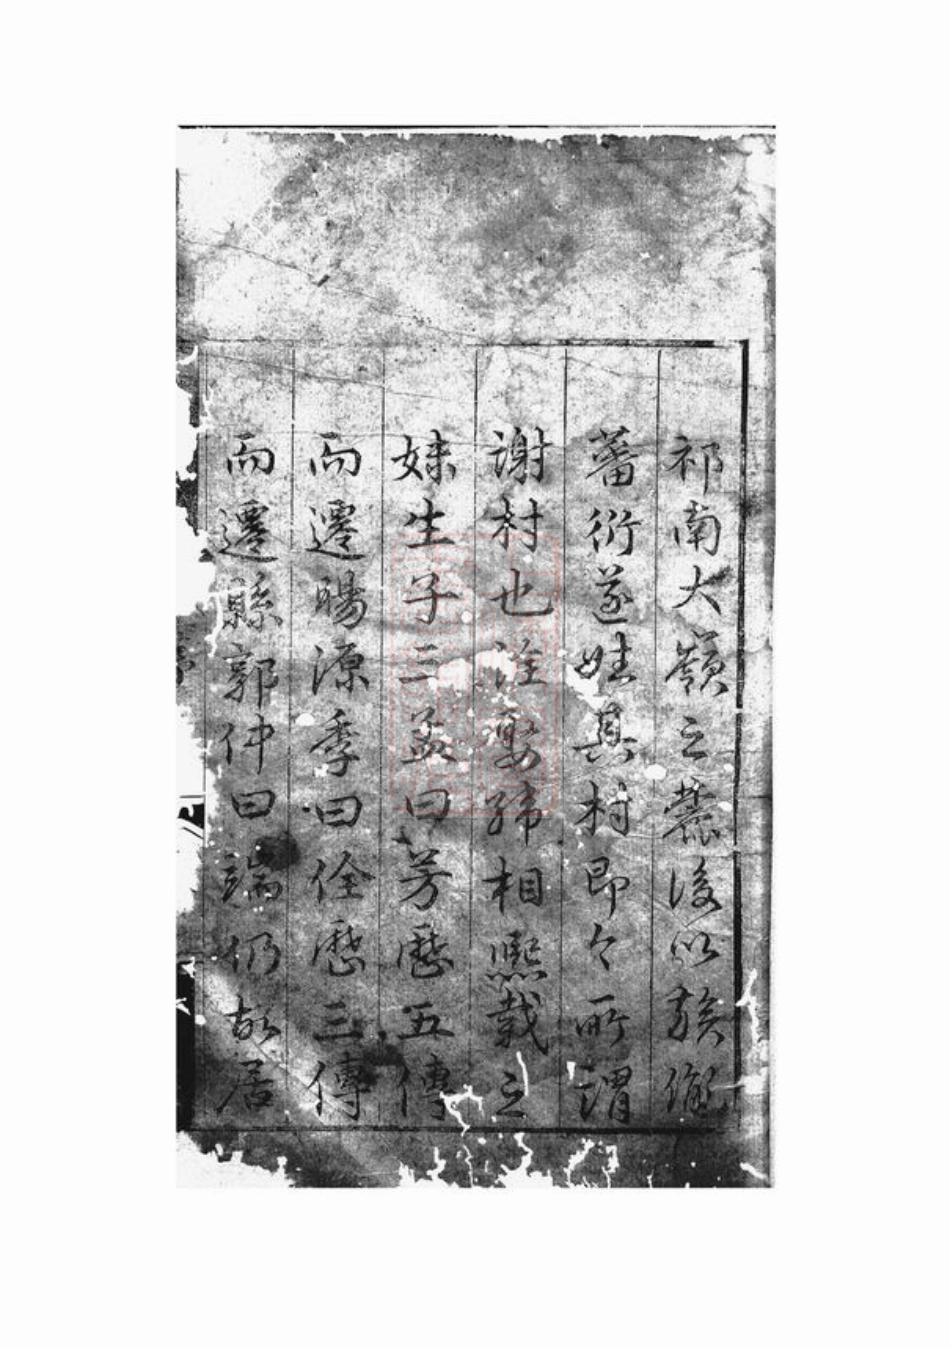 祁南大嶺之麓後以族繁
蕃衍遂姓其村即今所謂
謝村也詮娶歸相熙載之
妹生子三孟曰芳歷五傳
而遷暘源季曰佺歷三傳
而遷縣郭仲曰端仍故居